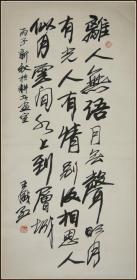 離人無語月無聲明月
有光人有情別後相思人
似月雲間水上到層城
丙子新秋